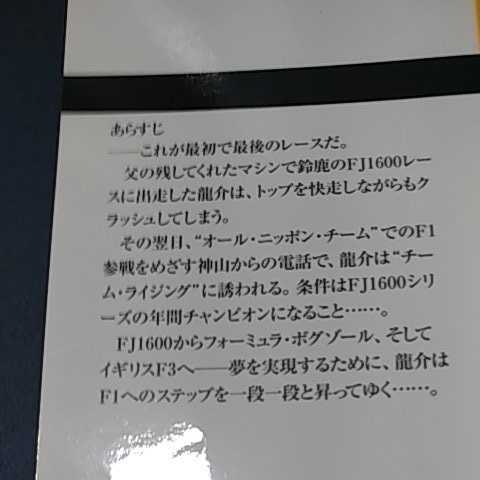 あらすじ
――これが最初で最後のレースだ。
父の残してくれたマシンで鈴鹿のFJ1600レー
スに出走した龍介は、トップを快走しながらもク
ラッシュしてしまう。
その翌日、“オール・ニッポン・チーム”でのF1
参戦をめざす神山からの電話で、龍介は“チー
ム・ライジング”に誘われる。条件はFJ1600シリ
ーズの年間チャンピオンになること……。
FJ1600からフォーミュラ・ボグゾール、そして
イギリスF3へ――夢を実現するために、龍介は
F1へのステップを一段一段と昇ってゆく……。